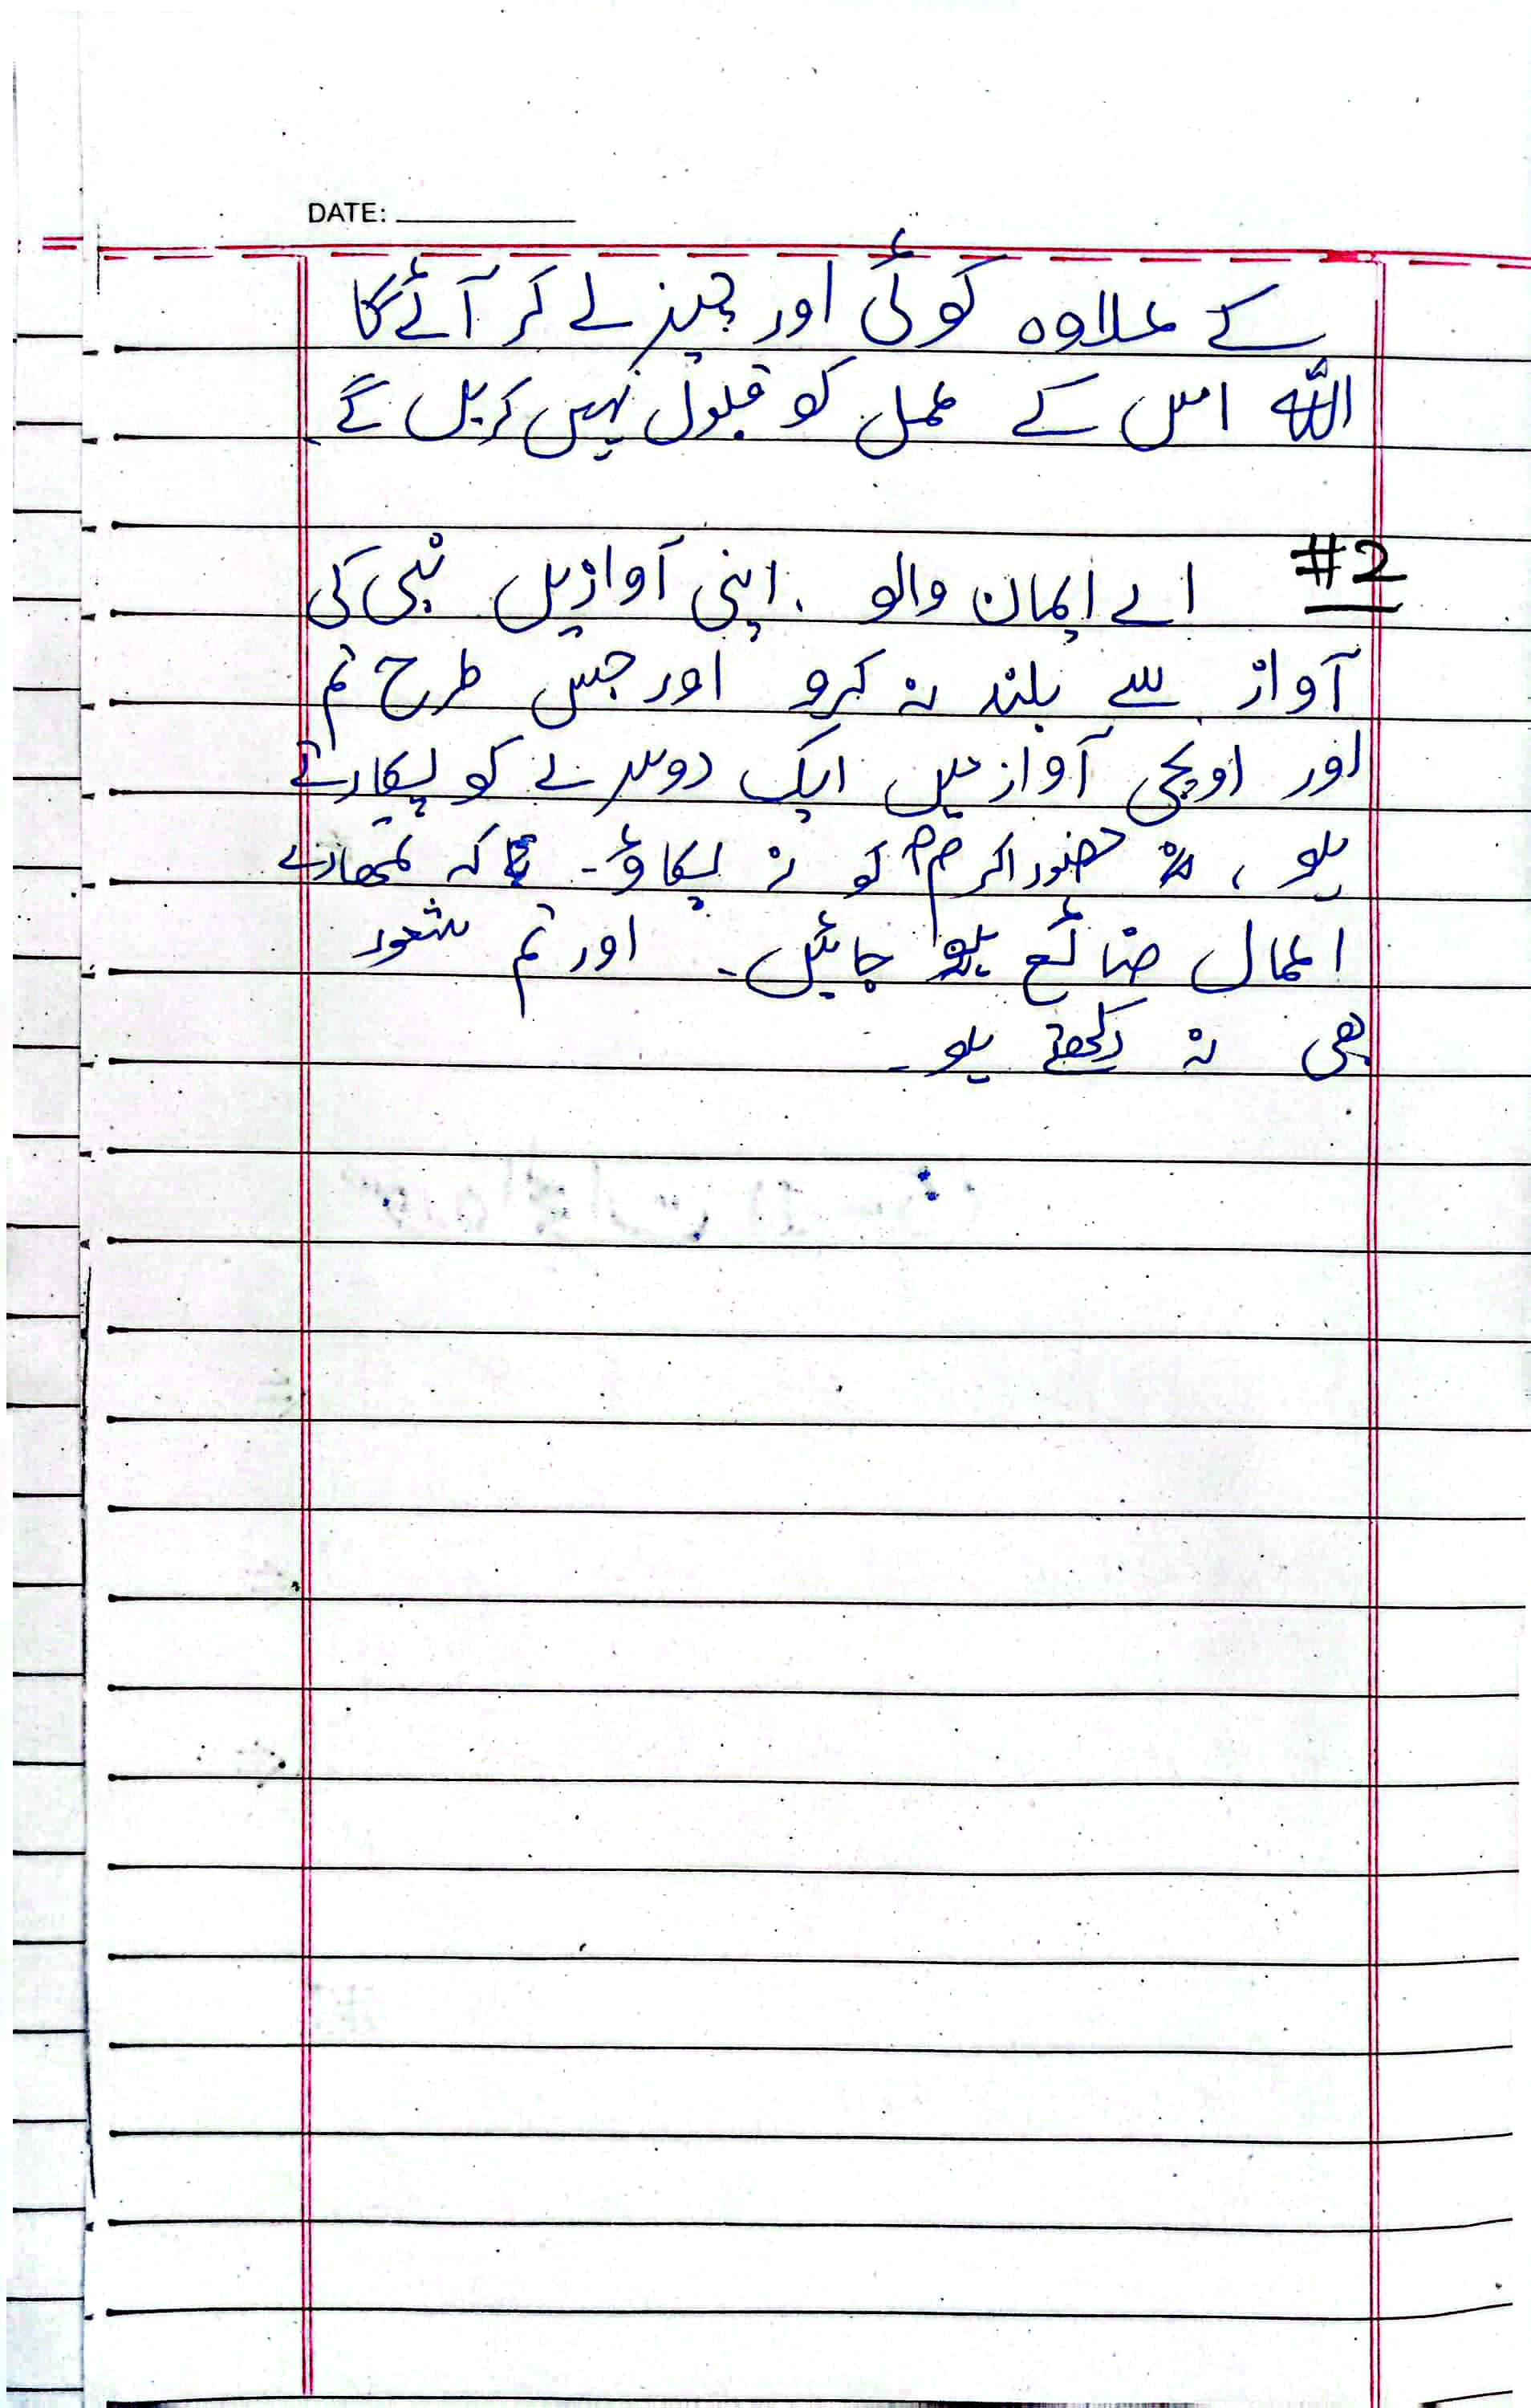 DATE:
کے علاوہ کوئی اور چیز لے کر آئے گا
اللہ اس کے عمل کو قبول نہیں کریں گے
#2 اے ایمان والو . اپنی آوازیں نبی کی
آواز سے بلند نہ کرو اور جس طرح تم
اور اونچی آواز میں ایک دوسرے کو پکارتے
ہو ، حضور اکرمؐ کو نہ پکاؤ - کہ تمھارے
اعمال ضائع ہو جائیں - اور تم شعور
بھی نہ رکھتے ہو -